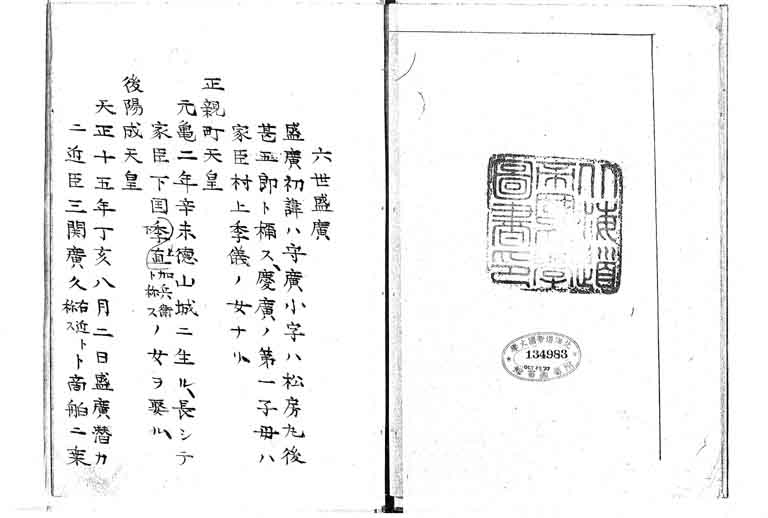 北海道
圖書印
北海道帝國大學
134983
圖書館
六世盛廣
盛廣初諱ハ守廣小字ハ松房丸後
甚五郎ト稱ス、慶廣ノ第一子母ハ
家臣村上季儀ノ女ナリ、
正親町天皇
元亀二年辛未徳山城ニ生ル、長シテ
家臣下国季直加兵衛ト称スノ女ヲ娶ル、
後陽成天皇
天正十五年丁亥八月二日盛廣潜カ
ニ近臣三関廣久右近ト称スト商舶ニ乗